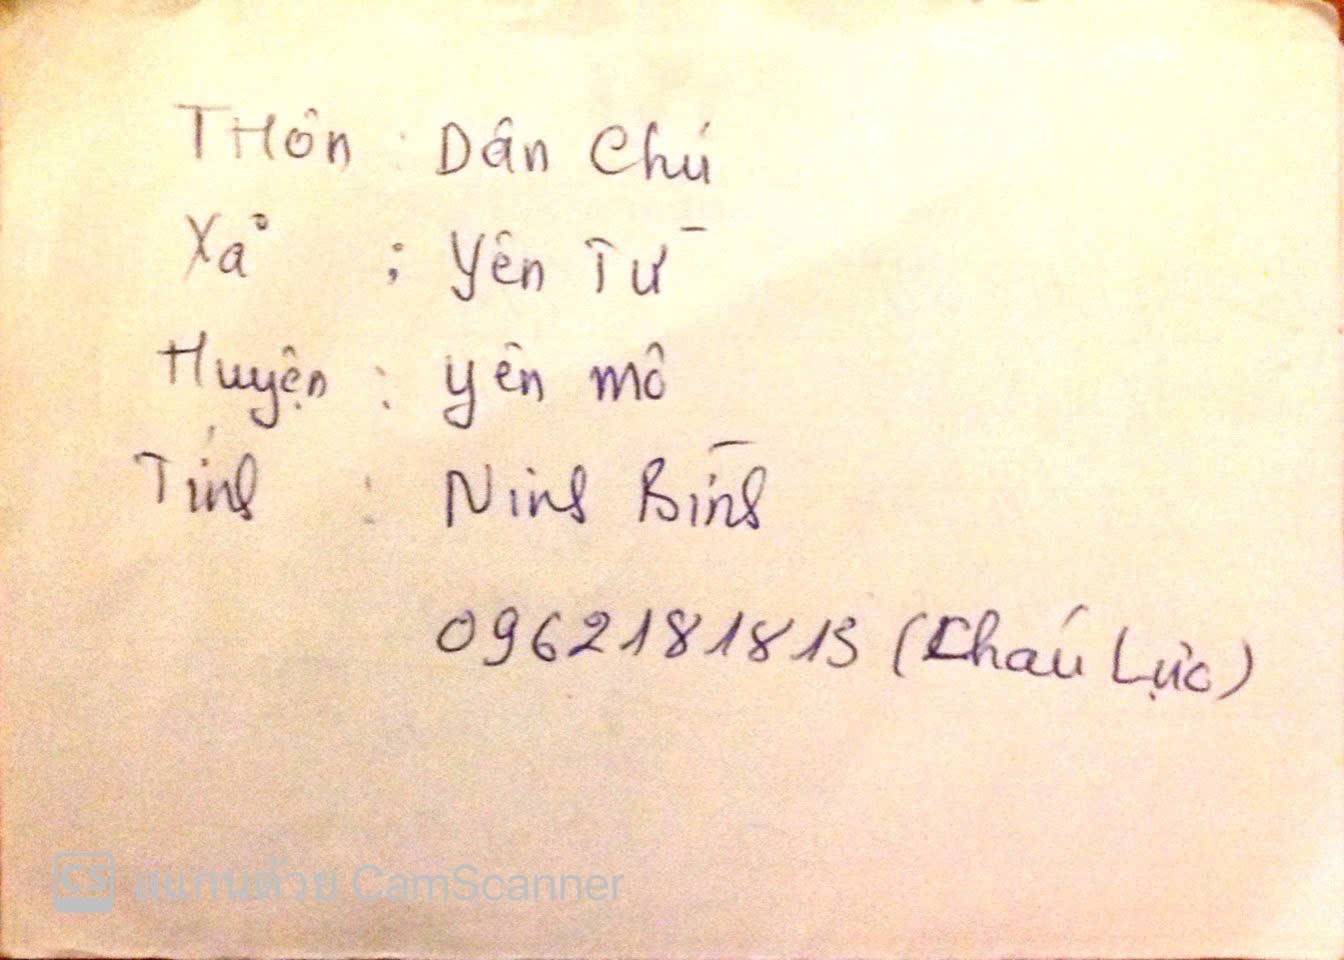 THôn : Dân Chủ
Xả : Yên Từ
Huyện : yên mô
Tỉnh : Ninh Bình
0962181813 (Cháu Lực)
CS สแกนด้วย CamScanner